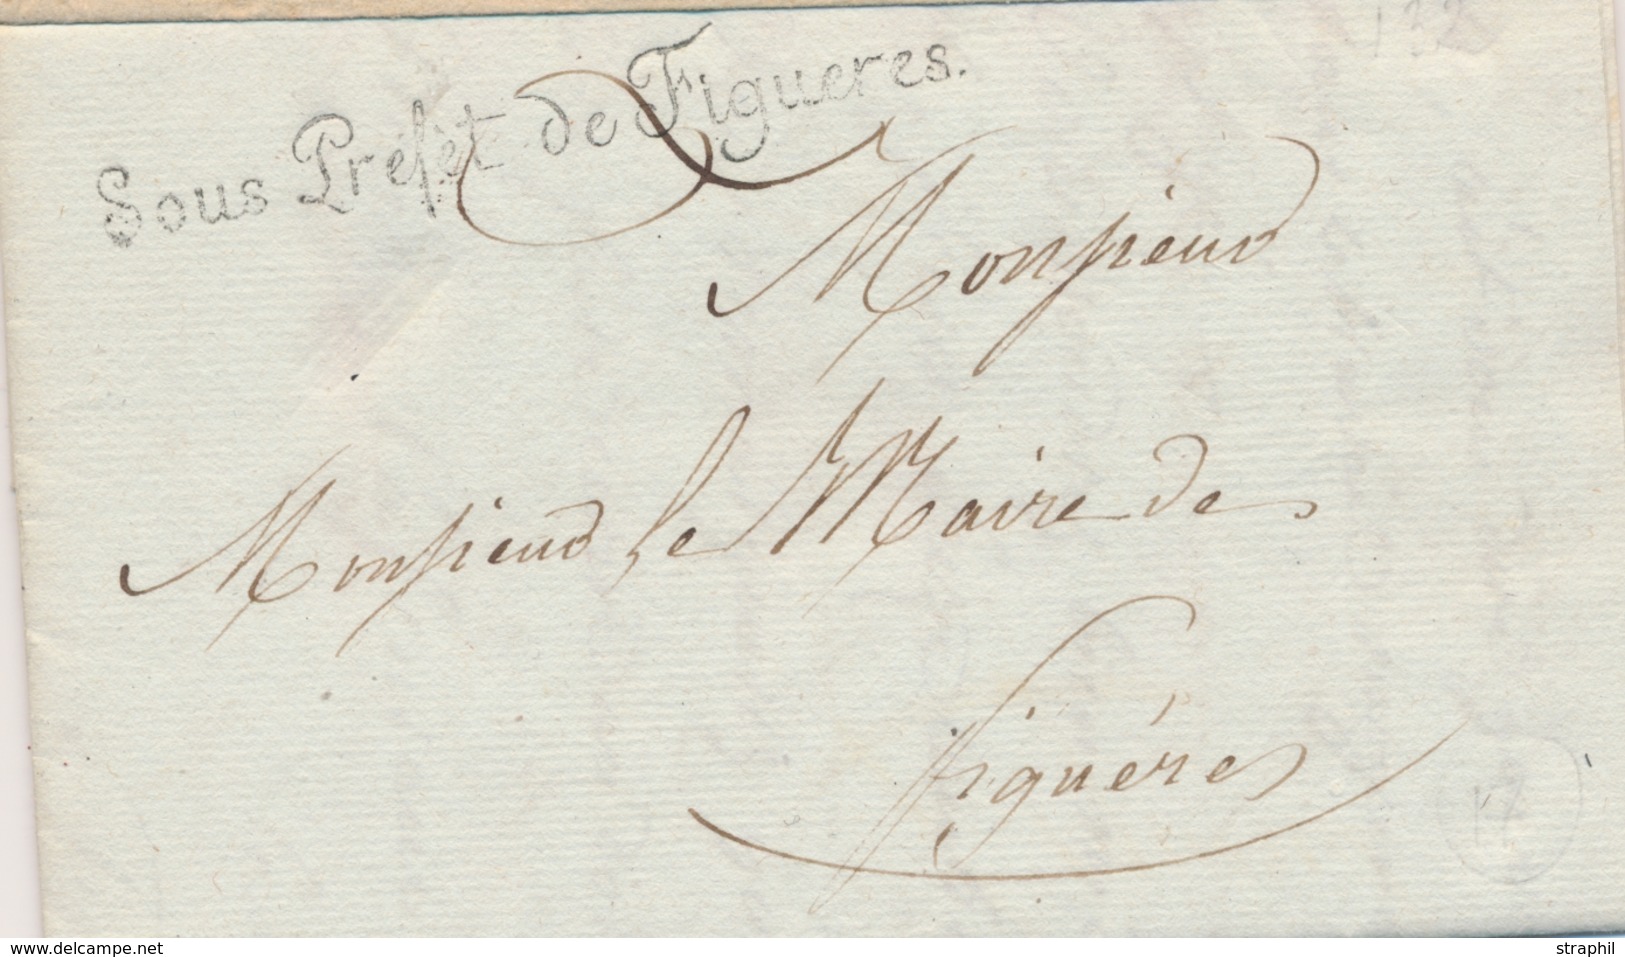 132
Sous Préfèt de Figueres.
Monsieur
Monsieur le Maire de
figuéres
www.delcampe.net
straphil